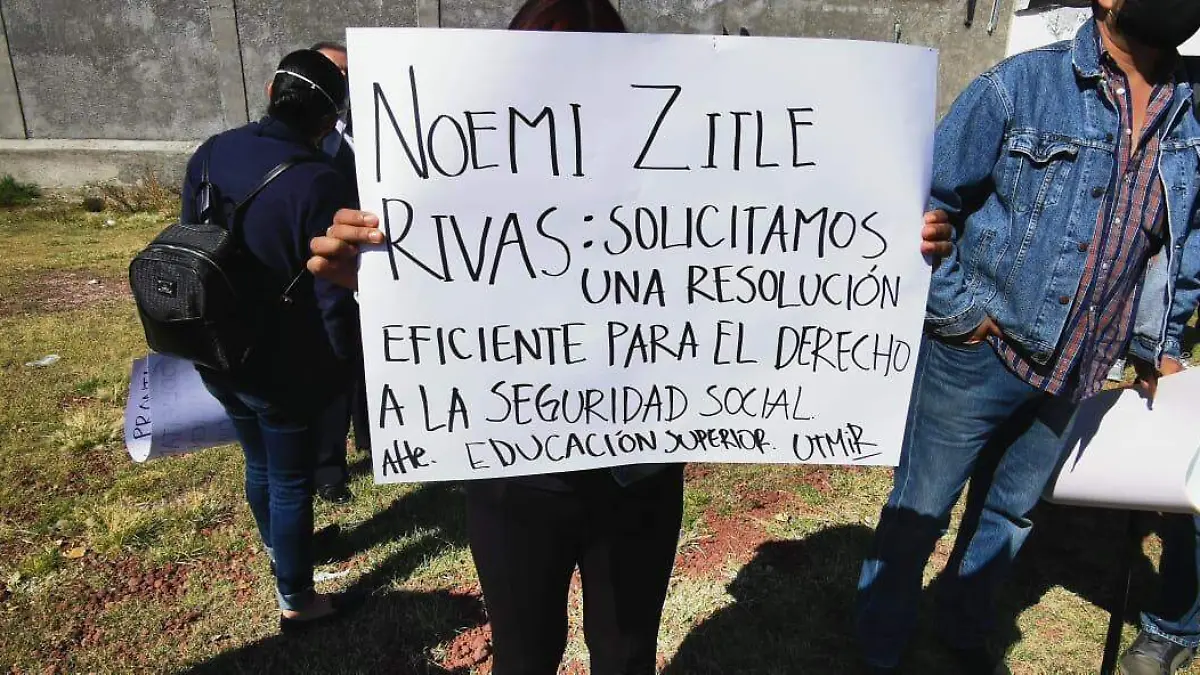 NOEMI ZITLE
RIVAS: SOLICITAMOS
UNA RESOLUCIÓN
EFICIENTE PARA EL DERECHO
A LA SEGURIDAD SOCIAL.
Atte. EDUCACIÓN SUPERIOR. UTMiR